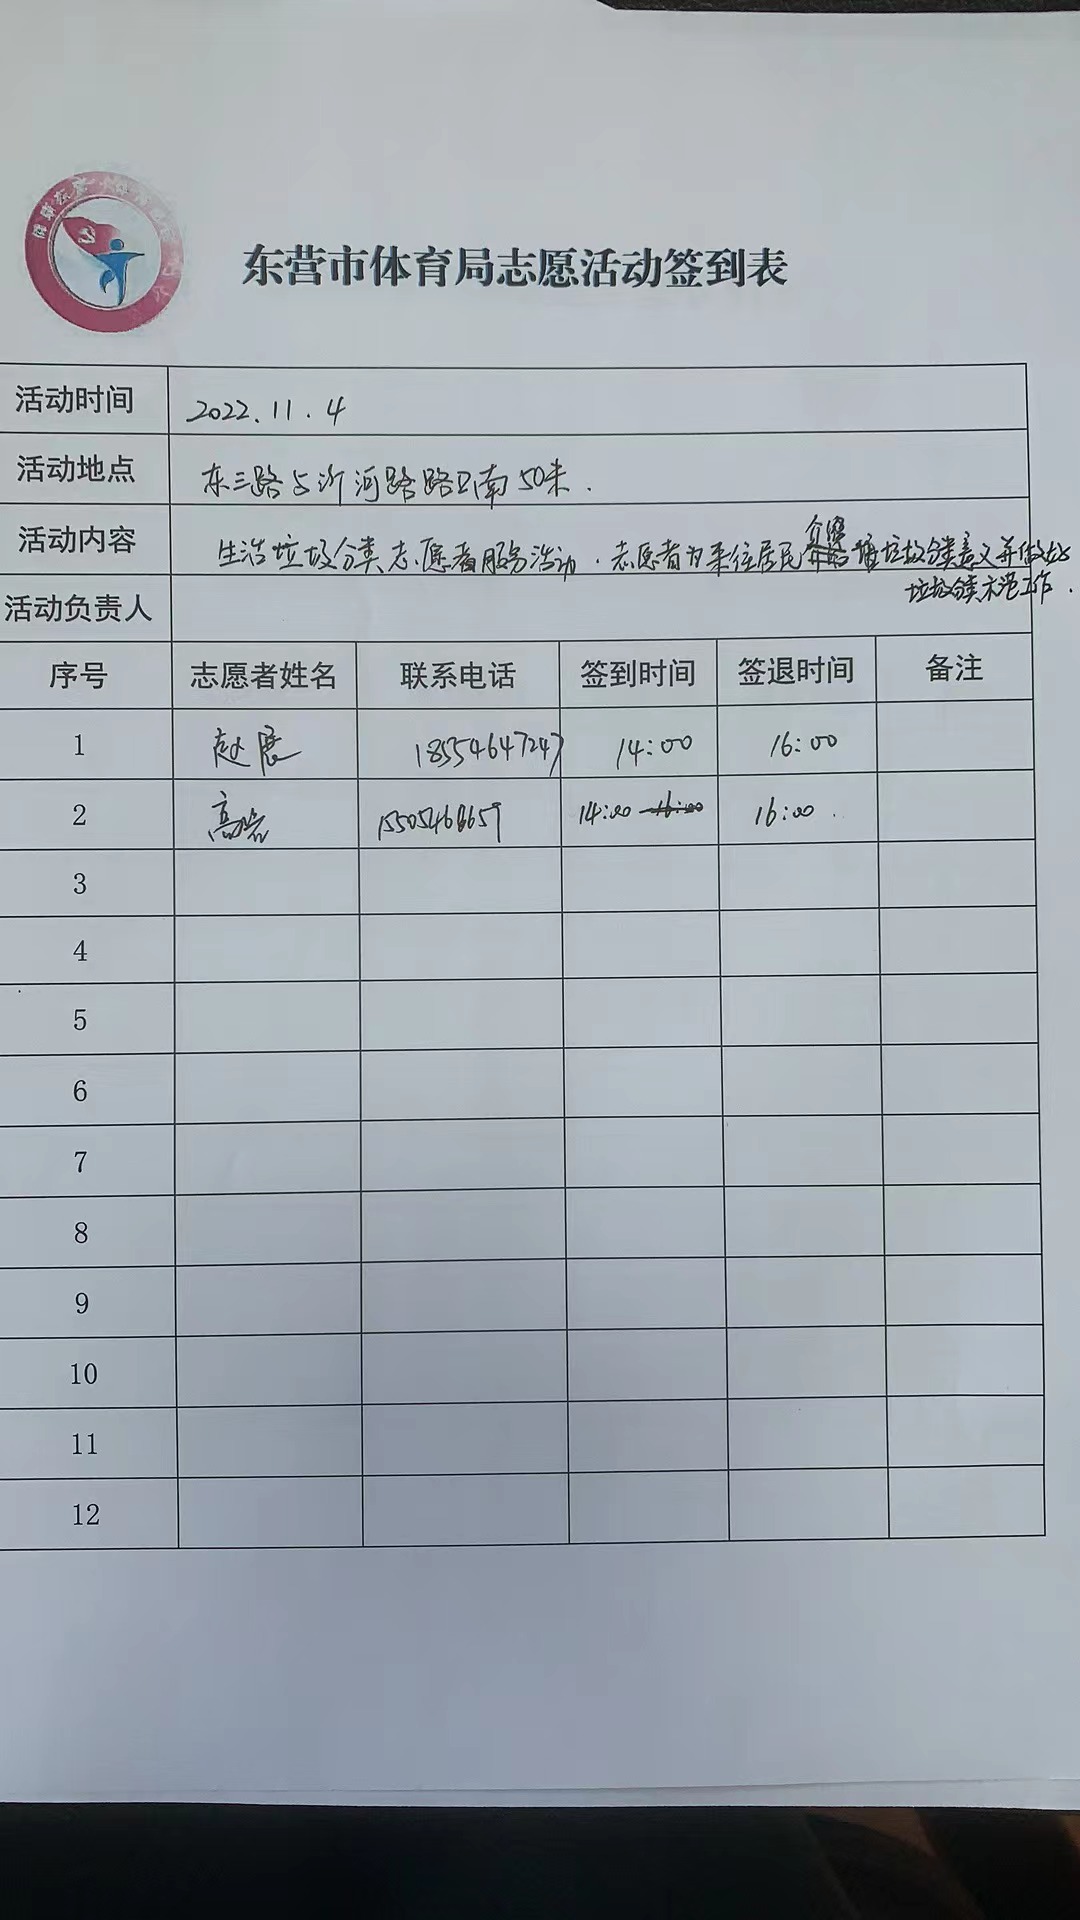 东营市体育局志愿活动签到表
活动时间 2022.11.4
活动地点 东三路与沂河路路口南50米.
活动内容 生活垃圾分类志愿者服务活动.志愿者为来往居民介绍垃圾分类意义并做好
垃圾分类示范工作.
活动负责人
序号 志愿者姓名 联系电话 签到时间 签退时间 备注
1 赵展 18554647247 14:00 16:00
2 高岩 14:00 16:00 16:00
3
4
5
6
7
8
9
10
11
12